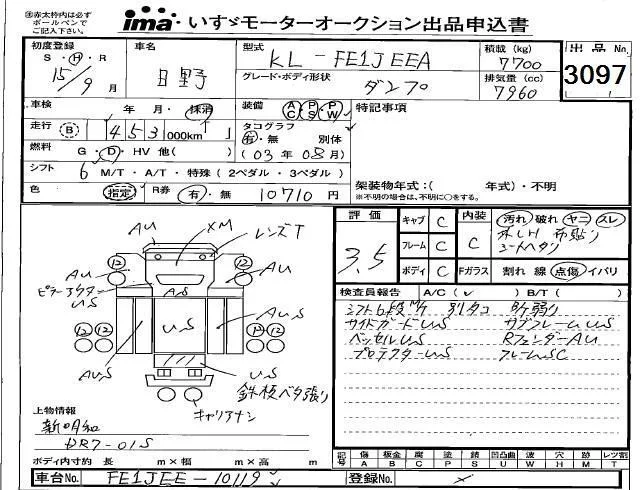 ※赤太枠内は必ず
ボールペンで
ご記入下さい。
ima いすゞモーターオークション出品申込書
初度登録
S・H・R
15/9月
車名
日野
型式
KL-FE1JEEA
グレード・ボディ形状
ダンプ
積載 (kg)
7700
排気量 (cc)
7960
出品No.
3097
車検
年 月・抹消
装備
AC PS PW
特記事項
走行
B 453 000km
タコグラフ
有・無 別体
(03年08月)
燃料
G・D・HV 他( )
シフト
6 M/T・A/T・特殊(2ペダル・3ペダル)
架装物年式:( 年式)・不明
※不明の場合は、不明に○をする。
色
指定
R券
有・無 10710円
評価
3.5
キャブ C
フレーム C
ボディ C
内装
C
Fガラス
汚れ 破れ ヤニ スレ
シートヘタリ
割れ 線 点傷 イバリ
検査員報告 A/C( ) B/T( )
シフト6段M/T 別タコ
サイドガードUS サブフレームUS
ベッセルUS RフェンダーAU
プロテクターUS フレームSC
AU XM レンズT
12 12
AU AU
A,S
US
US AU,S
12 12
AU,S
US
鉄板ベタ張り
キャリアナシ
上物情報
新明和
DR7-01S
ボディ内寸約 長 m×幅 m×高 m
記号 傷A 板金B 腐C 塗P 錆S 凹凸曲U 波W 穴H 跡M レツ割T
車台No. FE1JEE-10119
登録No.